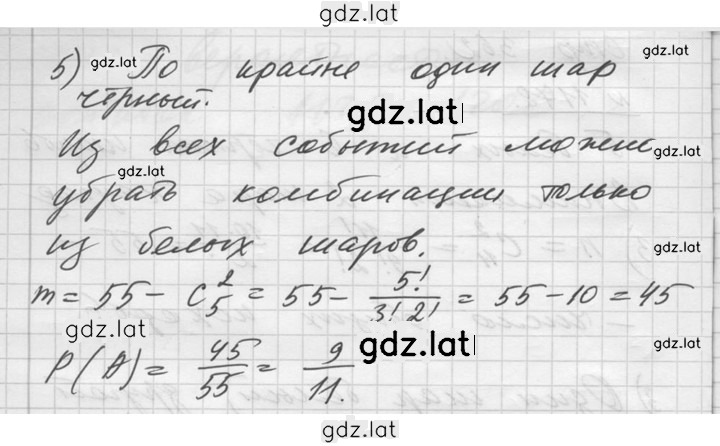 gdz.lat
5) gdz.lat По крайне один шар
чёрный. gdz.lat
Из всех событий можно gdz.lat
gdz.lat
убрать комбинации только
из белых шаров.
m = 55 - C₅² = 55 - 5!/(3! 2!) = 55 - 10 = 45
gdz.lat gdz.lat gdz.lat
P(A) = 45/55 = 9/11.
gdz.lat